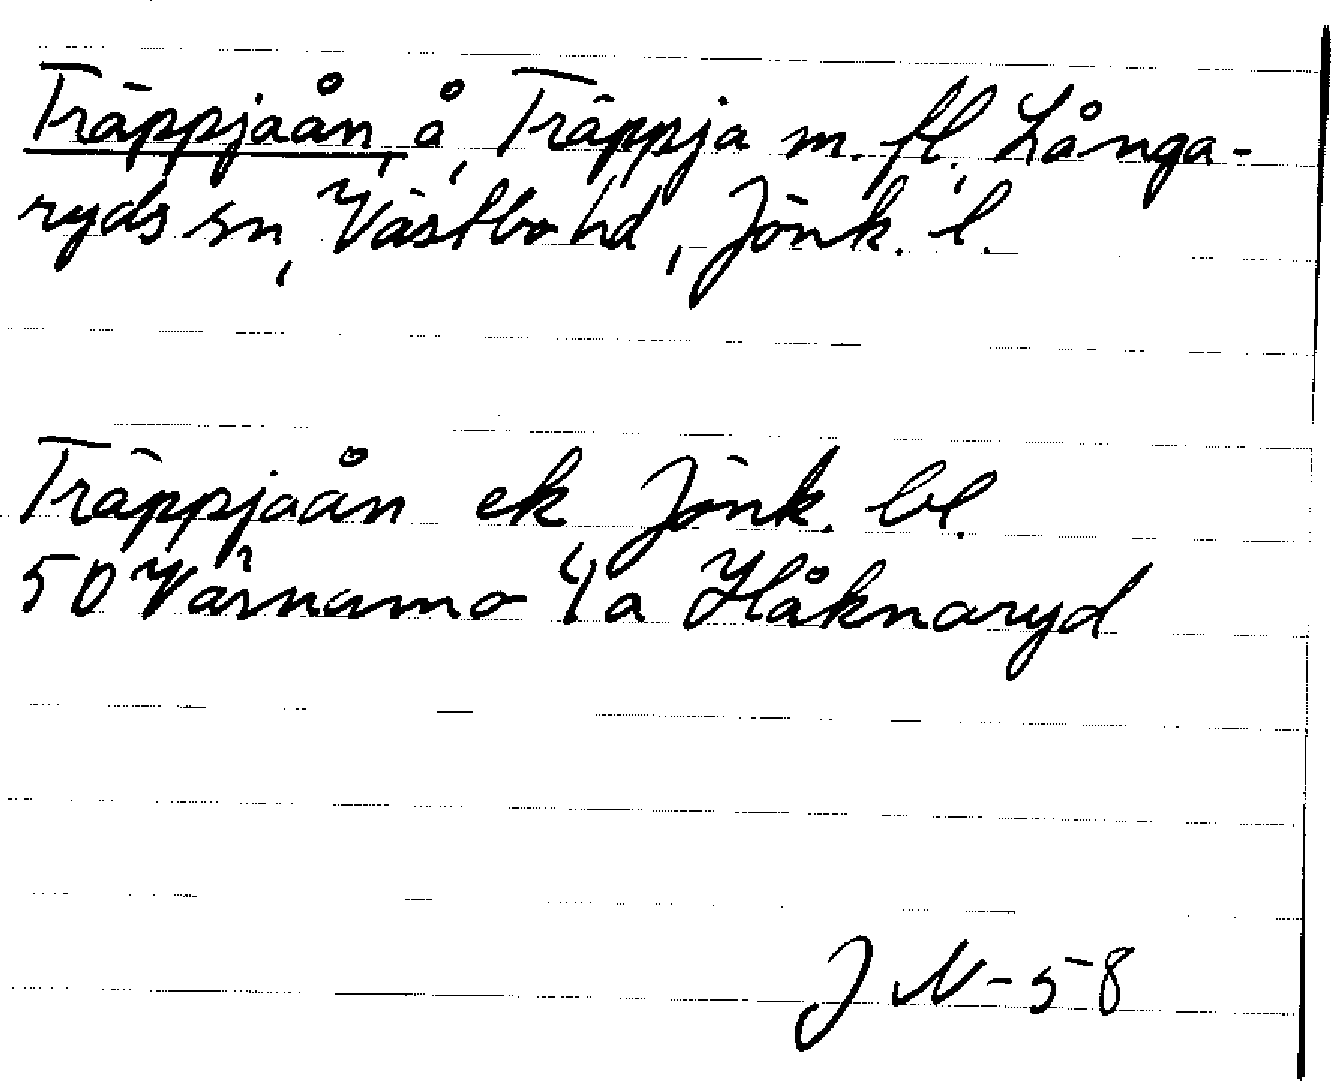 Träppjaån, å, Träppja m. fl., Långa-
ryds sn, Västbo hd, Jönk. l.
Träppjaån ek Jönk. bl.
50 Värnamo Ya Håknaryd
J N-58